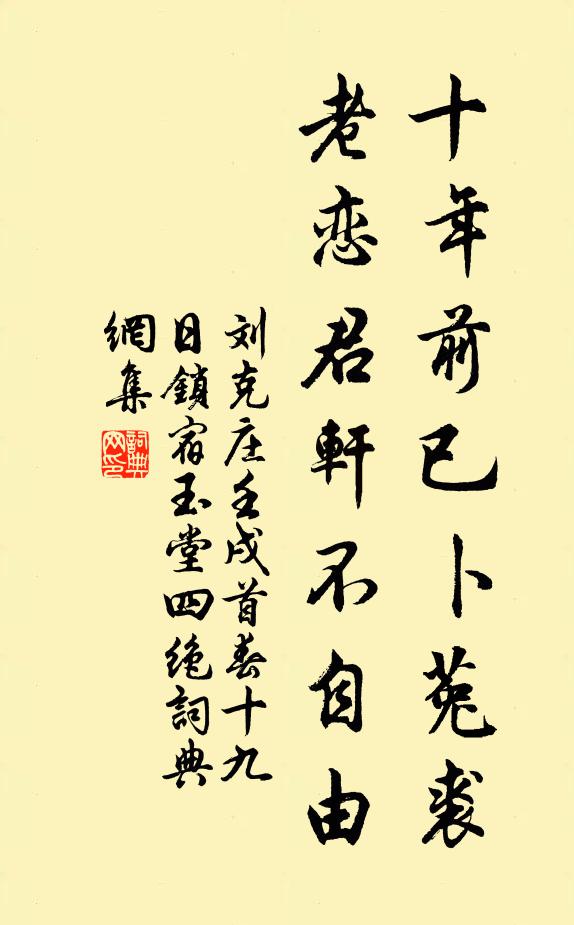 十年前已卜菟裘
老恋君軒不自由
刘克庄壬戌首春十九
日鎖宿玉堂四绝詞典
網集
詞典網印